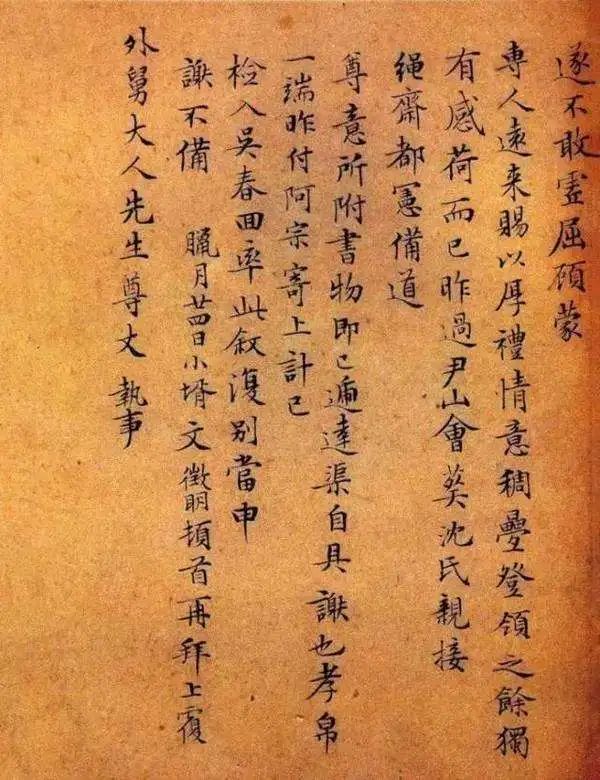 遂不敢灵屈顾蒙
専人遠来賜以厚禮情意稠疊登領之餘獨
有感荷而已昨過尹山會葬沈氏親接
繩齋都憲備道
尊意所附書物即已逓達渠自具謝也孝帛
一端昨付阿宗寄上計已
檢入吳春回率此叙復別當申
謝不備 臘月廿四日小壻文徵明頓首再拜上覆
外舅大人先生尊丈執事